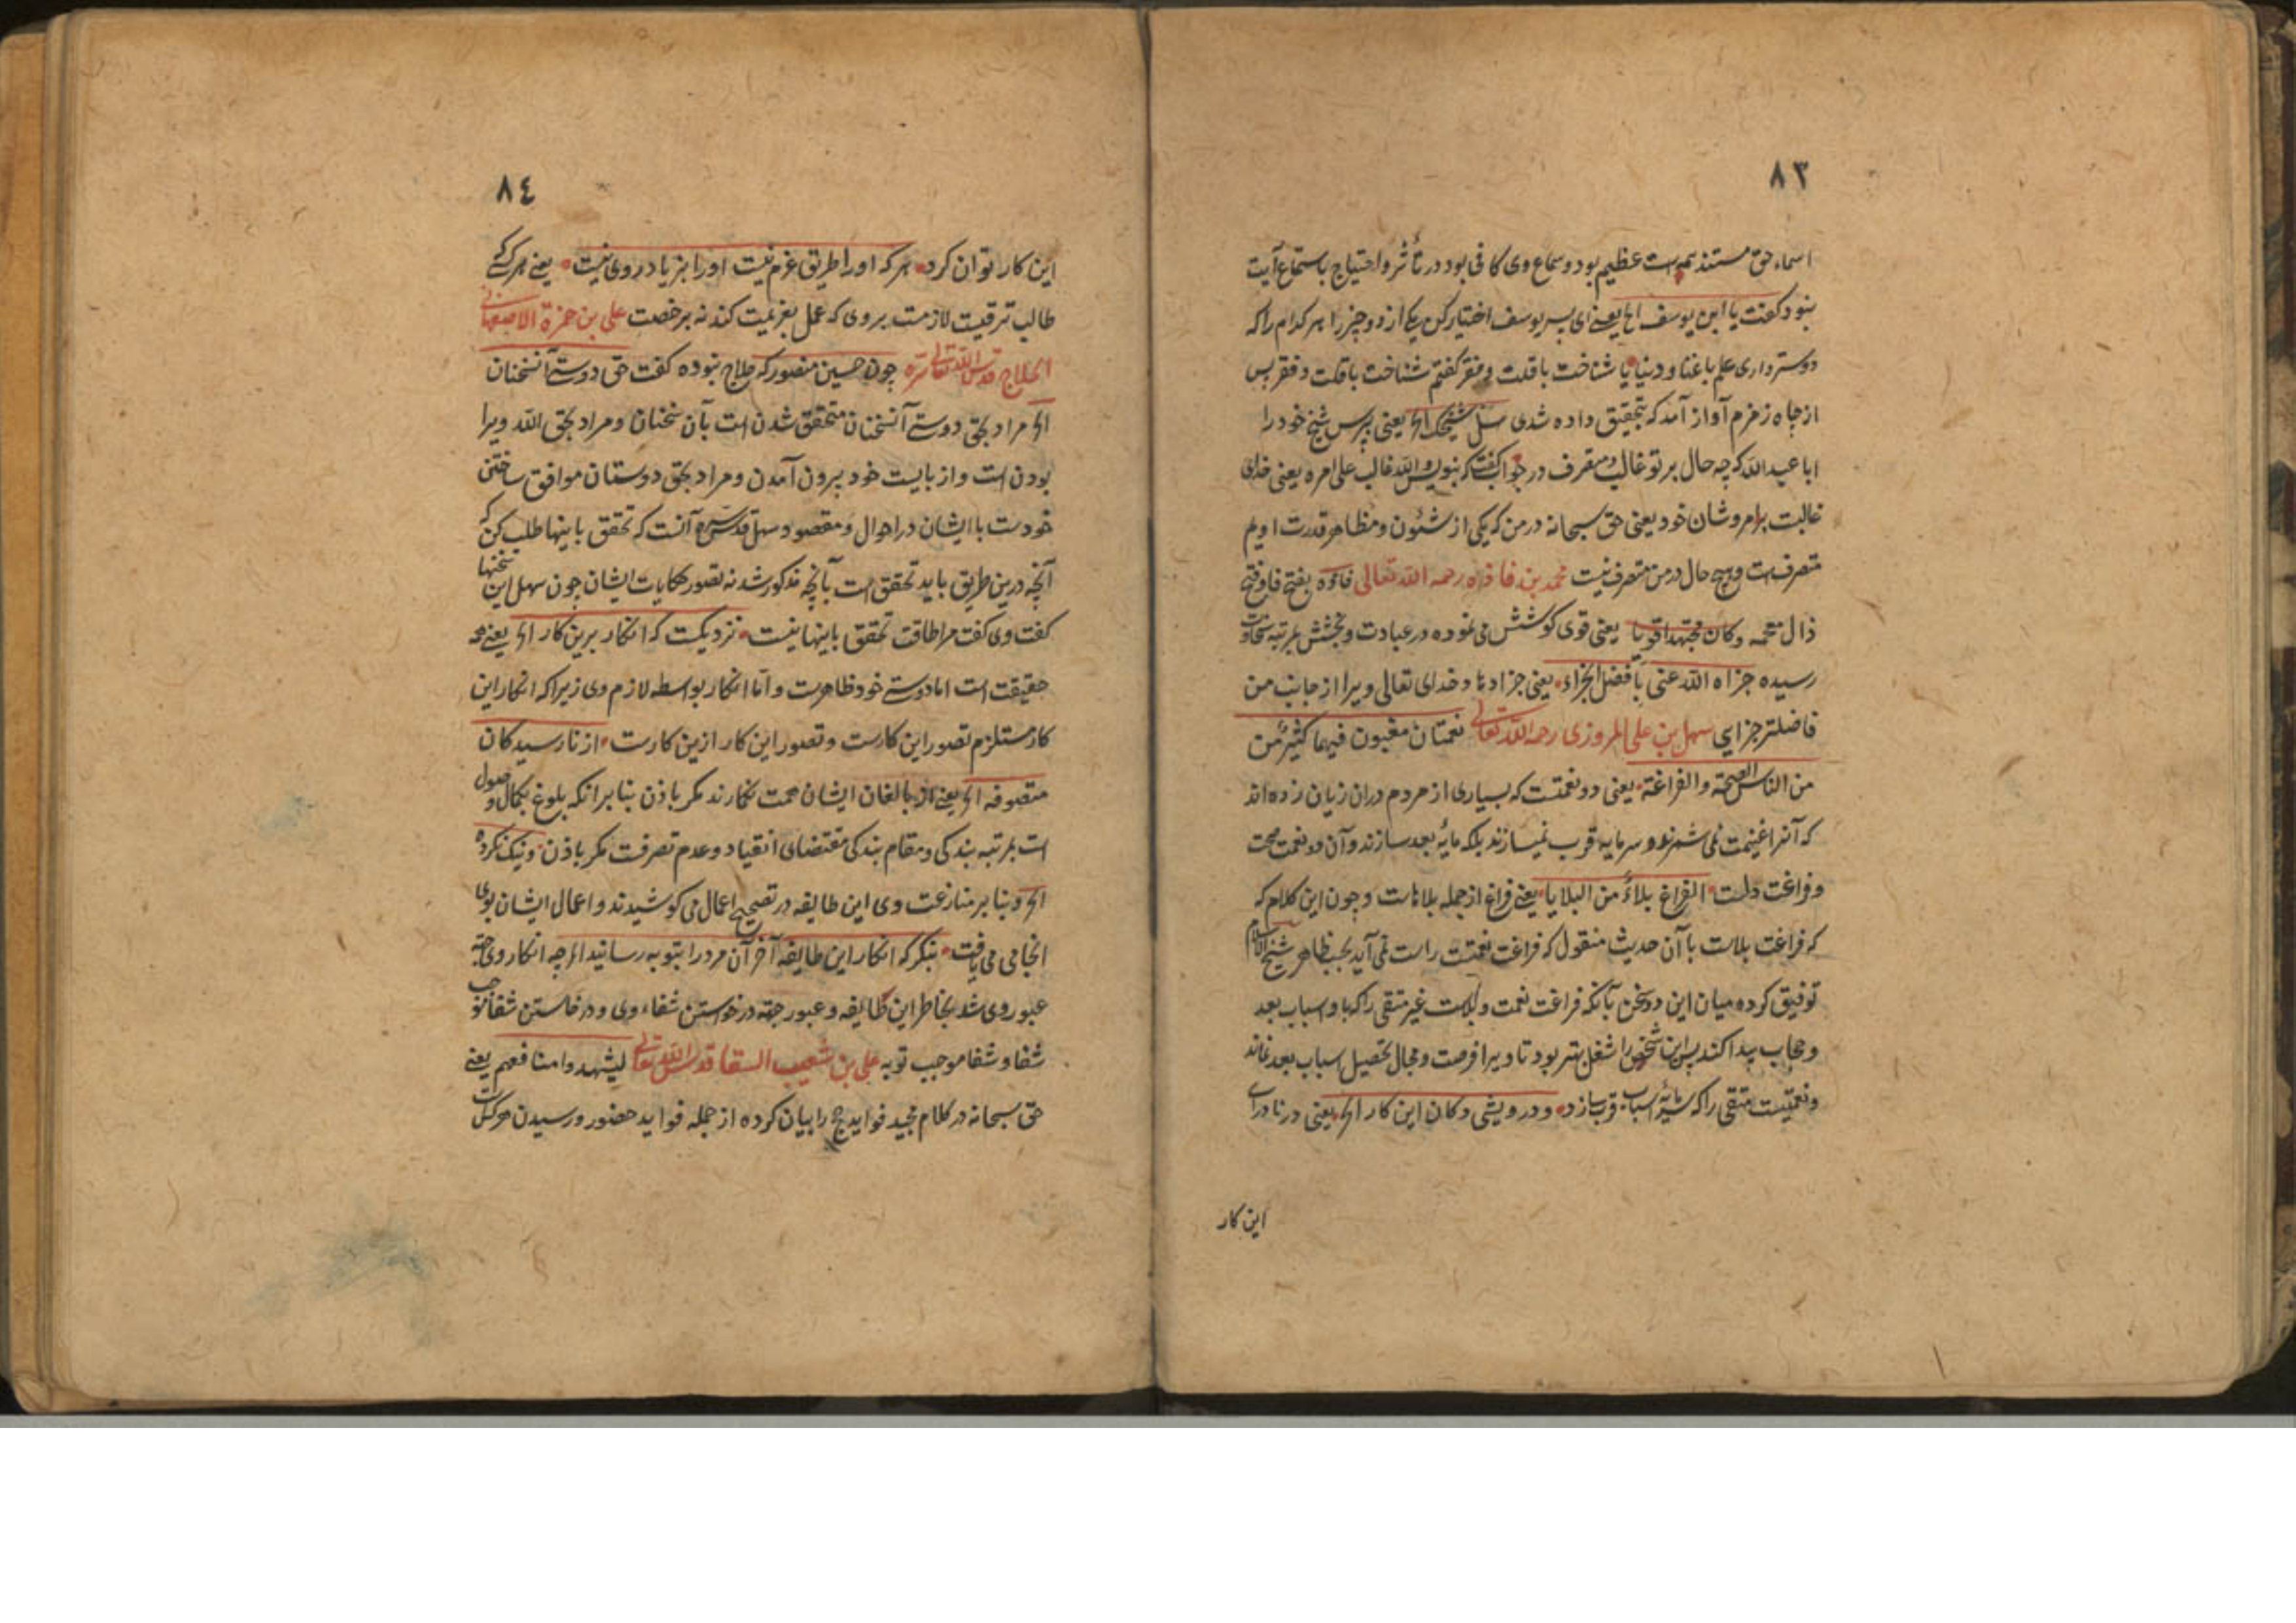 ٨٣
اسماء حق مستند بهمست عظیم بود و سماع وی کافی بود در تأثر و احتیاج باستماع آیت
نبود گفت یا ابن یوسف الخ یعنی ای پسر یوسف اختیار کن یکی از دو چیز را هر کدام را که
دوستر داری علم با غنا و دنیا یا شناخت با قلت و فقر گفتم شناخت با قلت و فقر پس
از چاه زمزم آواز آمد که بتحقیق داده شدی سل شیخک الخ یعنی بپرس شیخ خود را
ابا عبد الله که چه حال بر تو غالب و متصرف در جواب گفت که بنویس والله غالب علی امره یعنی خدای
غالبست بر امر و شان خود یعنی حق سبحانه در من که یکی از شئون و مظاهر قدرت اویم
متصرف است و هیچ حال در من متصرف نیست محمد بن فاذه رحمه الله تعالی فاذه بفتح فا و فتح
ذال معجمه و کان مجتهدا قویا یعنی قوی کوشش می نموده در عبادت و بخشش بمرتبه سخاوت
رسیده جزاه الله عنی بأفضل الجزاء یعنی جزا دهاد خدای تعالی ویرا از جانب من
فاضلتر جزایی سهل بن علی المروزی رحمه الله تعالی نعمتان مغبون فیهما کثیر من
من الناس الصحة والفراغة یعنی دو نعمتست که بسیاری از مردم دران زیان زده اند
که آنرا غنیمت نمی شمرند و سرمایه قرب نمیسازند بلکه مایهٔ بعد سازند و آن دو نعمت صحت
و فراغت دلست الفراغ بلاءٌ من البلایا یعنی فراغ از جمله بلاهاست و چون این کلام که
که فراغت بلاست با آن حدیث منقول که فراغت نعمتست راست نمی آید بحسب ظاهر شیخ الاسلام
توفیق کرده میان این دو سخن بآنکه فراغت نعمت و بلاست غیر متقی را که باو اسباب بعد
و حجاب پیدا کند پس این شخص را شغل بهتر بود تا ویرا فرصت و مجال تحصیل اسباب بعد نماند
و نعمتیست متقی را که سرمایهٔ اسباب قرب سازد و در درویشی دکان این کار الخ یعنی در نادرای
این کار
٨٤
این کار توان کرد هر که او را طریق عزم نیست او را بزیادروی نیست یعنی هر کسی
طالب ترقیست لازمست بروی که عمل بعزیمت کند نه برخصت علی بن حمزة الاصفهانی
الحلاج قدس الله تعالی سره چون حسین منصور که حلاج نبوده گفت حق دوستی آنسخنان
الخ مراد بحق دوستی آنسخنان متحقق شدن است بآن سخنان و مراد بحق الله ویرا
بودن است و از بایست خود بیرون آمدن و مراد بحق دوستان موافق ساختن
خودست با ایشان در احوال و مقصود سهل قدس سره آنست که تحقق باینها طلب کن که
آنچه درین طریق باید تحقق است بآنچه مذکور شد نه تصور حکایات ایشان چون سهل این سخنها
گفت وی گفت مرا طاقت تحقق باینها نیست نزدیکست که انکار برین کار الخ یعنی
حقیقت است اما دوستی خود ظاهرست و اما انکار بواسطه لازم وی زیرا که انکار این
کار مستلزم تصور این کارست و تصور این کار ازین کارست از نارسیدکان
متصوفه الخ یعنی از بالغان ایشان همت نگمارند مگر باذن بنابر انکه بلوغ بکمال وصول
است بمرتبه بندکی و مقام بندکی مقتضای انقیاد و عدم تصرفست مگر باذن و نیک نکرده
الخ و بنابر منازعت وی این طایفه در تصحیح اعمال می کوشیدند و اعمال ایشان بوی
انجامی می یافت بنگر که انکار این طایفه آخر آن مرد را بتوبه رسانید الخ چه انکار وی جهة
عبور وی شد بخاطر این طایفه و عبور جهة درخواستن شفاء وی و درخاستن شفا موجب
شفا و شفا موجب توبه علی بن شعیب السقا قدس الله تعالی لیشهدوا منافعهم یعنی
حق سبحانه در کلام مجید فواید حج را بیان کرده از جمله فواید حضور و رسیدن